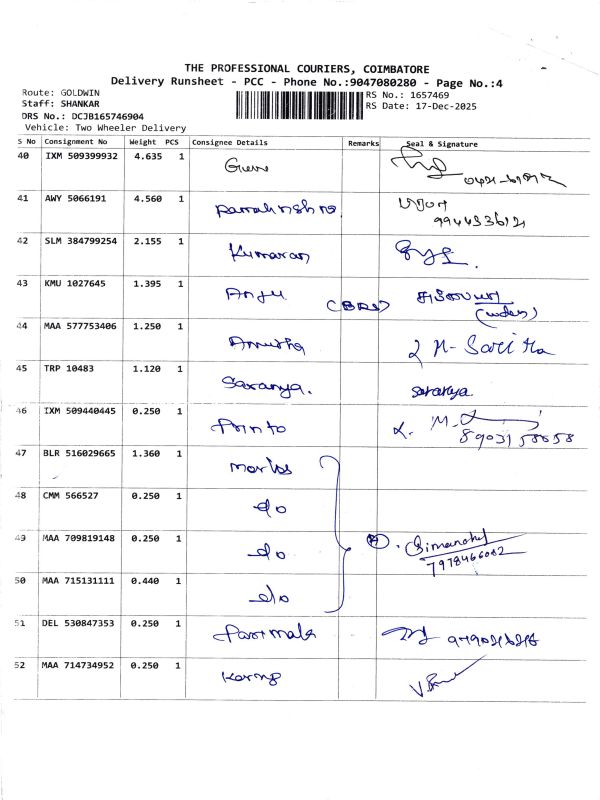 THE PROFESSIONAL COURIERS, COIMBATORE
Delivery Runsheet - PCC - Phone No.:9047080280 - Page No.:4
Route: GOLDWIN
Staff: SHANKAR
DRS No.: DCJB165746904
Vehicle: Two Wheeler Delivery
RS No.: 1657469
RS Date: 17-Dec-2025
S No Consignment No Weight PCS Consignee Details Remarks Seal & Signature
40 IXM 509399932 4.635 1
41 AWY 5066191 4.560 1
42 SLM 384799254 2.155 1 Kumaran
43 KMU 1027645 1.395 1 Anju
44 MAA 577753406 1.250 1
45 TRP 10483 1.120 1 Saranya. Saranya
46 IXM 509440445 0.250 1 Printo
8903158658
47 BLR 516029665 1.360 1
48 CMM 566527 0.250 1 do
49 MAA 709819148 0.250 1 do
7978466082
50 MAA 715131111 0.440 1 do
51 DEL 530847353 0.250 1
52 MAA 714734952 0.250 1